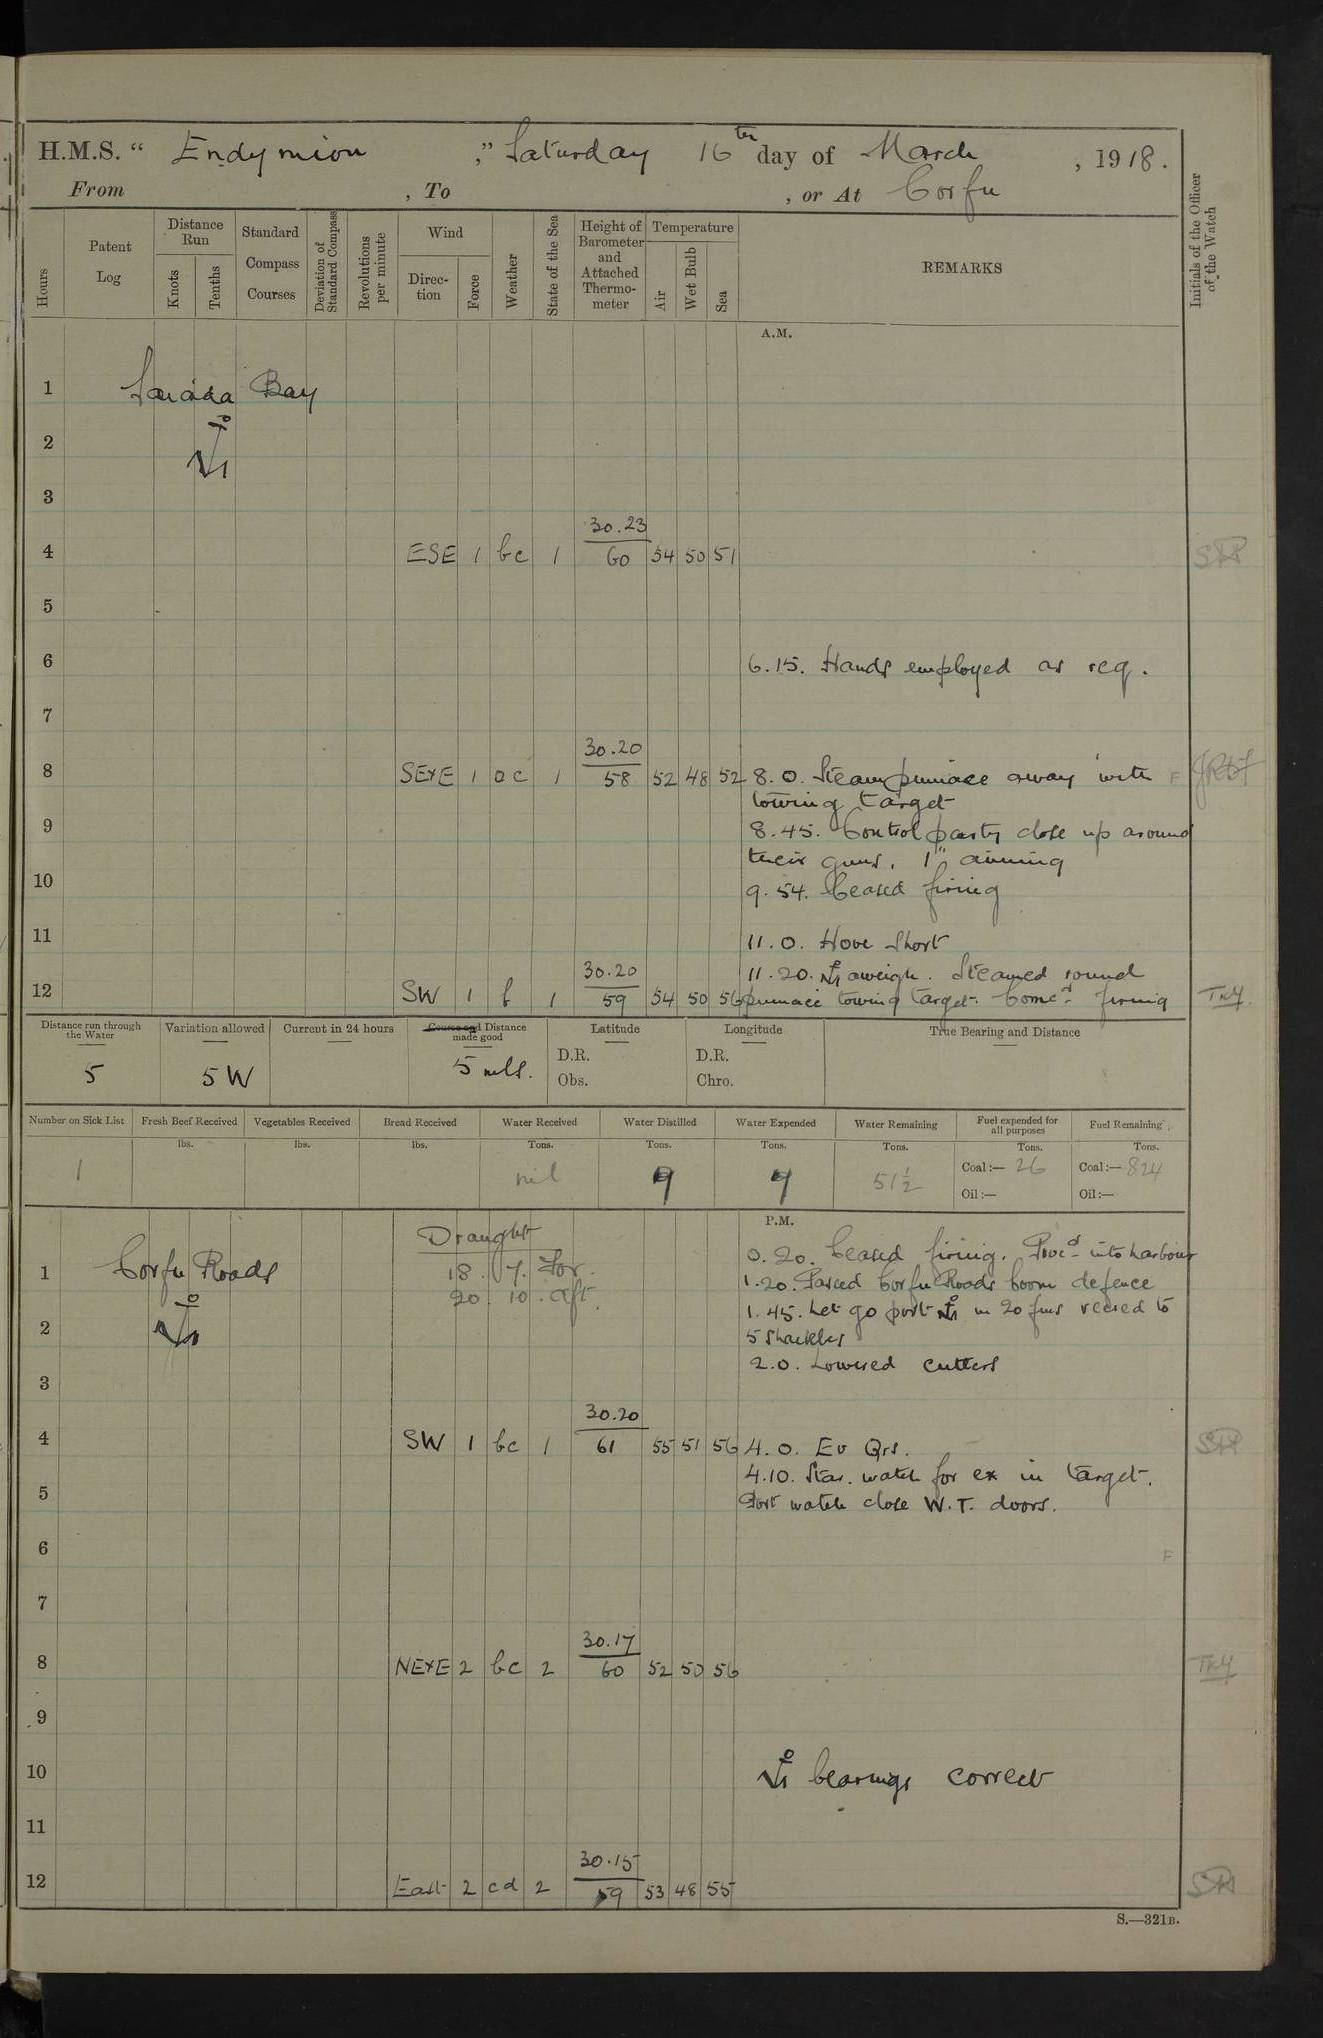 H.M.S. " Endymion ," Saturday 16th day of March , 1918.
From , To , or At Corfu
Hours
Patent Log
Distance Run
Knots
Tenths
Standard Compass Courses
Deviation of Standard Compass
Revolutions per minute
Wind
Direction
Force
Weather
State of the Sea
Height of Barometer and Attached Thermometer
Temperature
Air
Wet Bulb
Sea
REMARKS
Initials of the Officer of the Watch
A.M.
1 Bay
2
3
30.23
4 ESE 1 bc 1 60 54 50 51
5
6 6.15. Hands employed as req.
7
30.20
8 SExE 1 oc 1 58 52 48 52 8.0. Steam pinnace away with F
towing target
9 8.45. Control party close up around
their guns. 1" aiming
10 9.54. Ceased firing
11 11.0. Hove Short
30.20 11.20. ⚓ aweigh. Steamed round
12 SW 1 b 1 59 54 50 56 pinnace towing target. Comcd firing
Distance run through the Water
5
Variation allowed
5 W
Current in 24 hours
Course and Distance made good
5 mls.
Latitude
D.R.
Obs.
Longitude
D.R.
Chro.
True Bearing and Distance
Number on Sick List Fresh Beef Received Vegetables Received Bread Received Water Received Water Distilled Water Expended Water Remaining Fuel expended for all purposes Fuel Remaining
lbs. lbs. lbs. Tons. Tons. Tons. Tons. Tons. Tons.
1 nil 9 9 51½ Coal:— 26 Coal:— 824
Oil:— Oil:—
P.M.
Draught 0.20. Ceased firing. Procd into harbour
1 Corfu Roads 18. 7. For. 1.20. Passed Corfu Roads boom defence
20. 10. aft. 1.45. Let go port ⚓ in 20 fms veered to
2 5 shackles
2.0. Lowered cutters
3
30.20
4 SW 1 bc 1 61 55 51 56 4.0. Ev Qrs.
4.10. Star. watch for ex in target.
5 Port watch close W.T. doors.
6 F
7
30.17
8 NExE 2 bc 2 60 52 50 56
9
10 ⚓ bearings correct
11
30.15
12 East 2 cd 2 59 53 48 55
S.—321B.